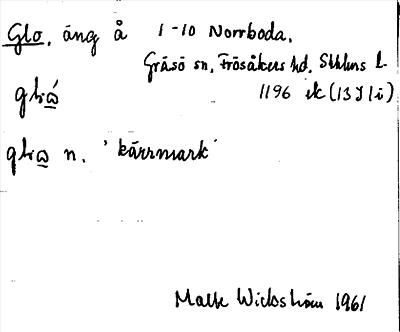 Glo, äng å 1-10 Norrboda,
Gräsö sn, Frösåkers hd, Sthlms l.
1196 ek (13 I 1i)
n. 'kärrmark'
Wickström 1961